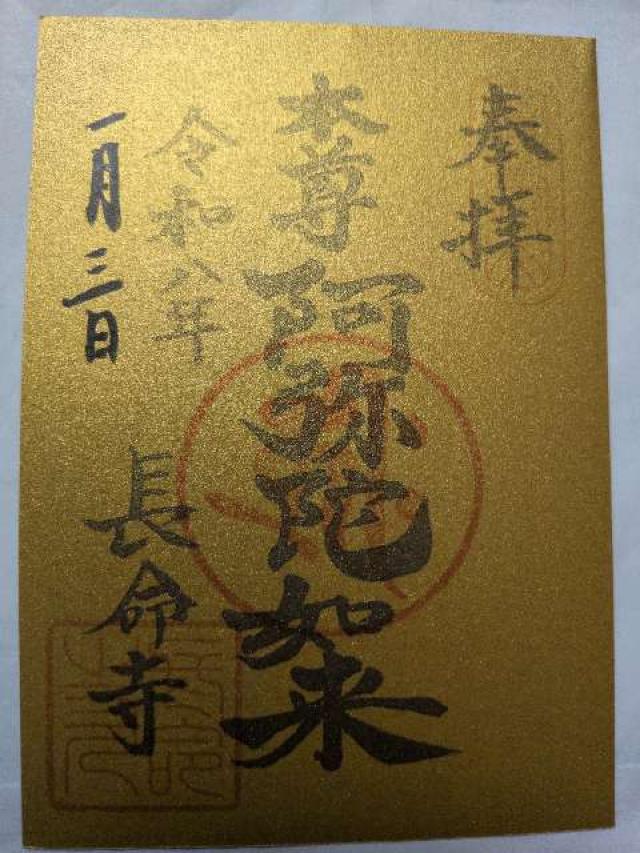 奉拝
本尊
阿弥陀如来
令和八年
一月三日
長命寺